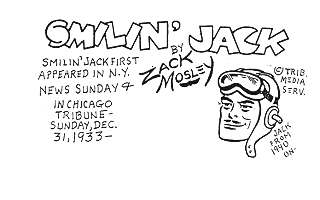 SMILIN' JACK
BY
ZACK
MOSLEY
SMILIN' JACK FIRST
APPEARED IN N.Y.
NEWS SUNDAY &
IN CHICAGO
TRIBUNE-
SUNDAY, DEC.
31, 1933-
© TRIB.
MEDIA
SERV.
JACK
FROM
1940
ON-